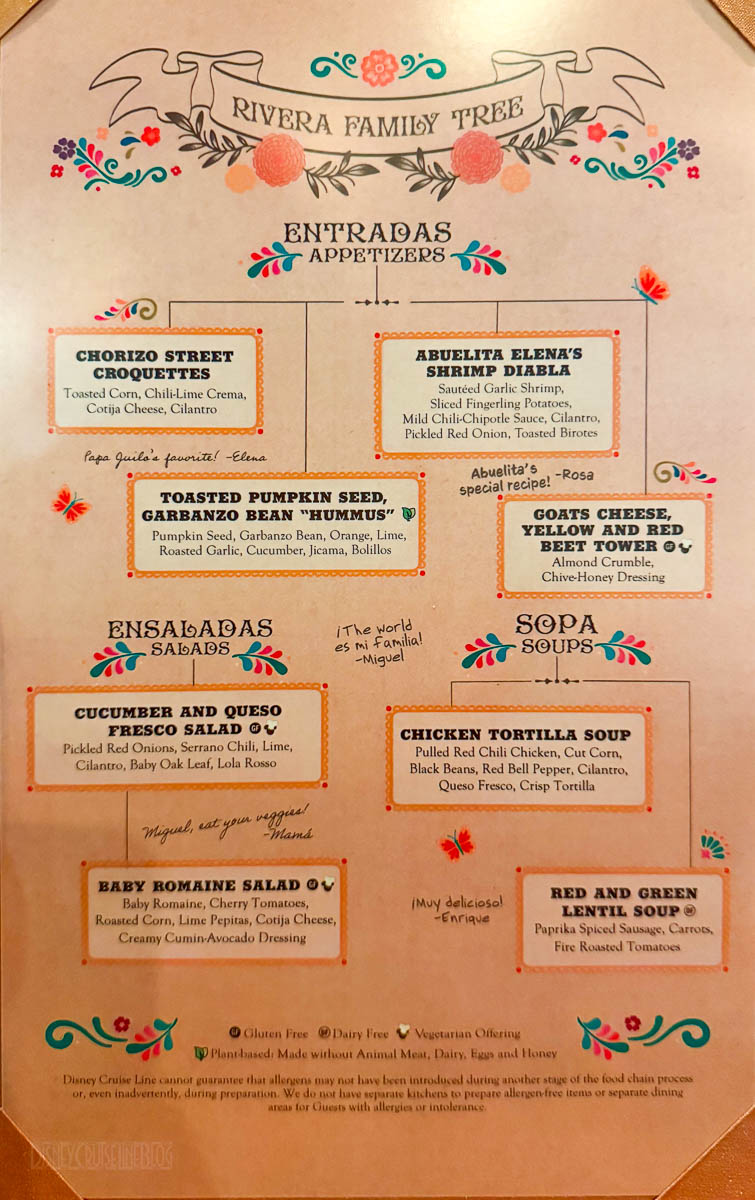 RIVERA FAMILY TREE
ENTRADAS
APPETIZERS
CHORIZO STREET
CROQUETTES
Toasted Corn, Chili-Lime Crema,
Cotija Cheese, Cilantro
Papa Juilo's favorite! -Elena
ABUELITA ELENA'S
SHRIMP DIABLA
Sautéed Garlic Shrimp,
Sliced Fingerling Potatoes,
Mild Chili-Chipotle Sauce, Cilantro,
Pickled Red Onion, Toasted Birotes
Abuelita's
special recipe! -Rosa
TOASTED PUMPKIN SEED,
GARBANZO BEAN "HUMMUS"
Pumpkin Seed, Garbanzo Bean, Orange, Lime,
Roasted Garlic, Cucumber, Jicama, Bolillos
GOATS CHEESE,
YELLOW AND RED
BEET TOWER GF
Almond Crumble,
Chive-Honey Dressing
ENSALADAS
SALADS
¡The world
es mi familia!
-Miguel
CUCUMBER AND QUESO
FRESCO SALAD GF
Pickled Red Onions, Serrano Chili, Lime,
Cilantro, Baby Oak Leaf, Lola Rosso
Miguel, eat your veggies!
-Mamá
BABY ROMAINE SALAD GF
Baby Romaine, Cherry Tomatoes,
Roasted Corn, Lime Pepitas, Cotija Cheese,
Creamy Cumin-Avocado Dressing
SOPA
SOUPS
CHICKEN TORTILLA SOUP
Pulled Red Chili Chicken, Cut Corn,
Black Beans, Red Bell Pepper, Cilantro,
Queso Fresco, Crisp Tortilla
¡Muy delicioso!
-Enrique
RED AND GREEN
LENTIL SOUP DF
Paprika Spiced Sausage, Carrots,
Fire Roasted Tomatoes
GF Gluten Free DF Dairy Free Vegetarian Offering
Plant-based: Made without Animal Meat, Dairy, Eggs and Honey
Disney Cruise Line cannot guarantee that allergens may not have been introduced during another stage of the food chain process
or, even inadvertently, during preparation. We do not have separate kitchens to prepare allergen-free items or separate dining
areas for Guests with allergies or intolerance.
DISNEYCRUISELINEBLOG